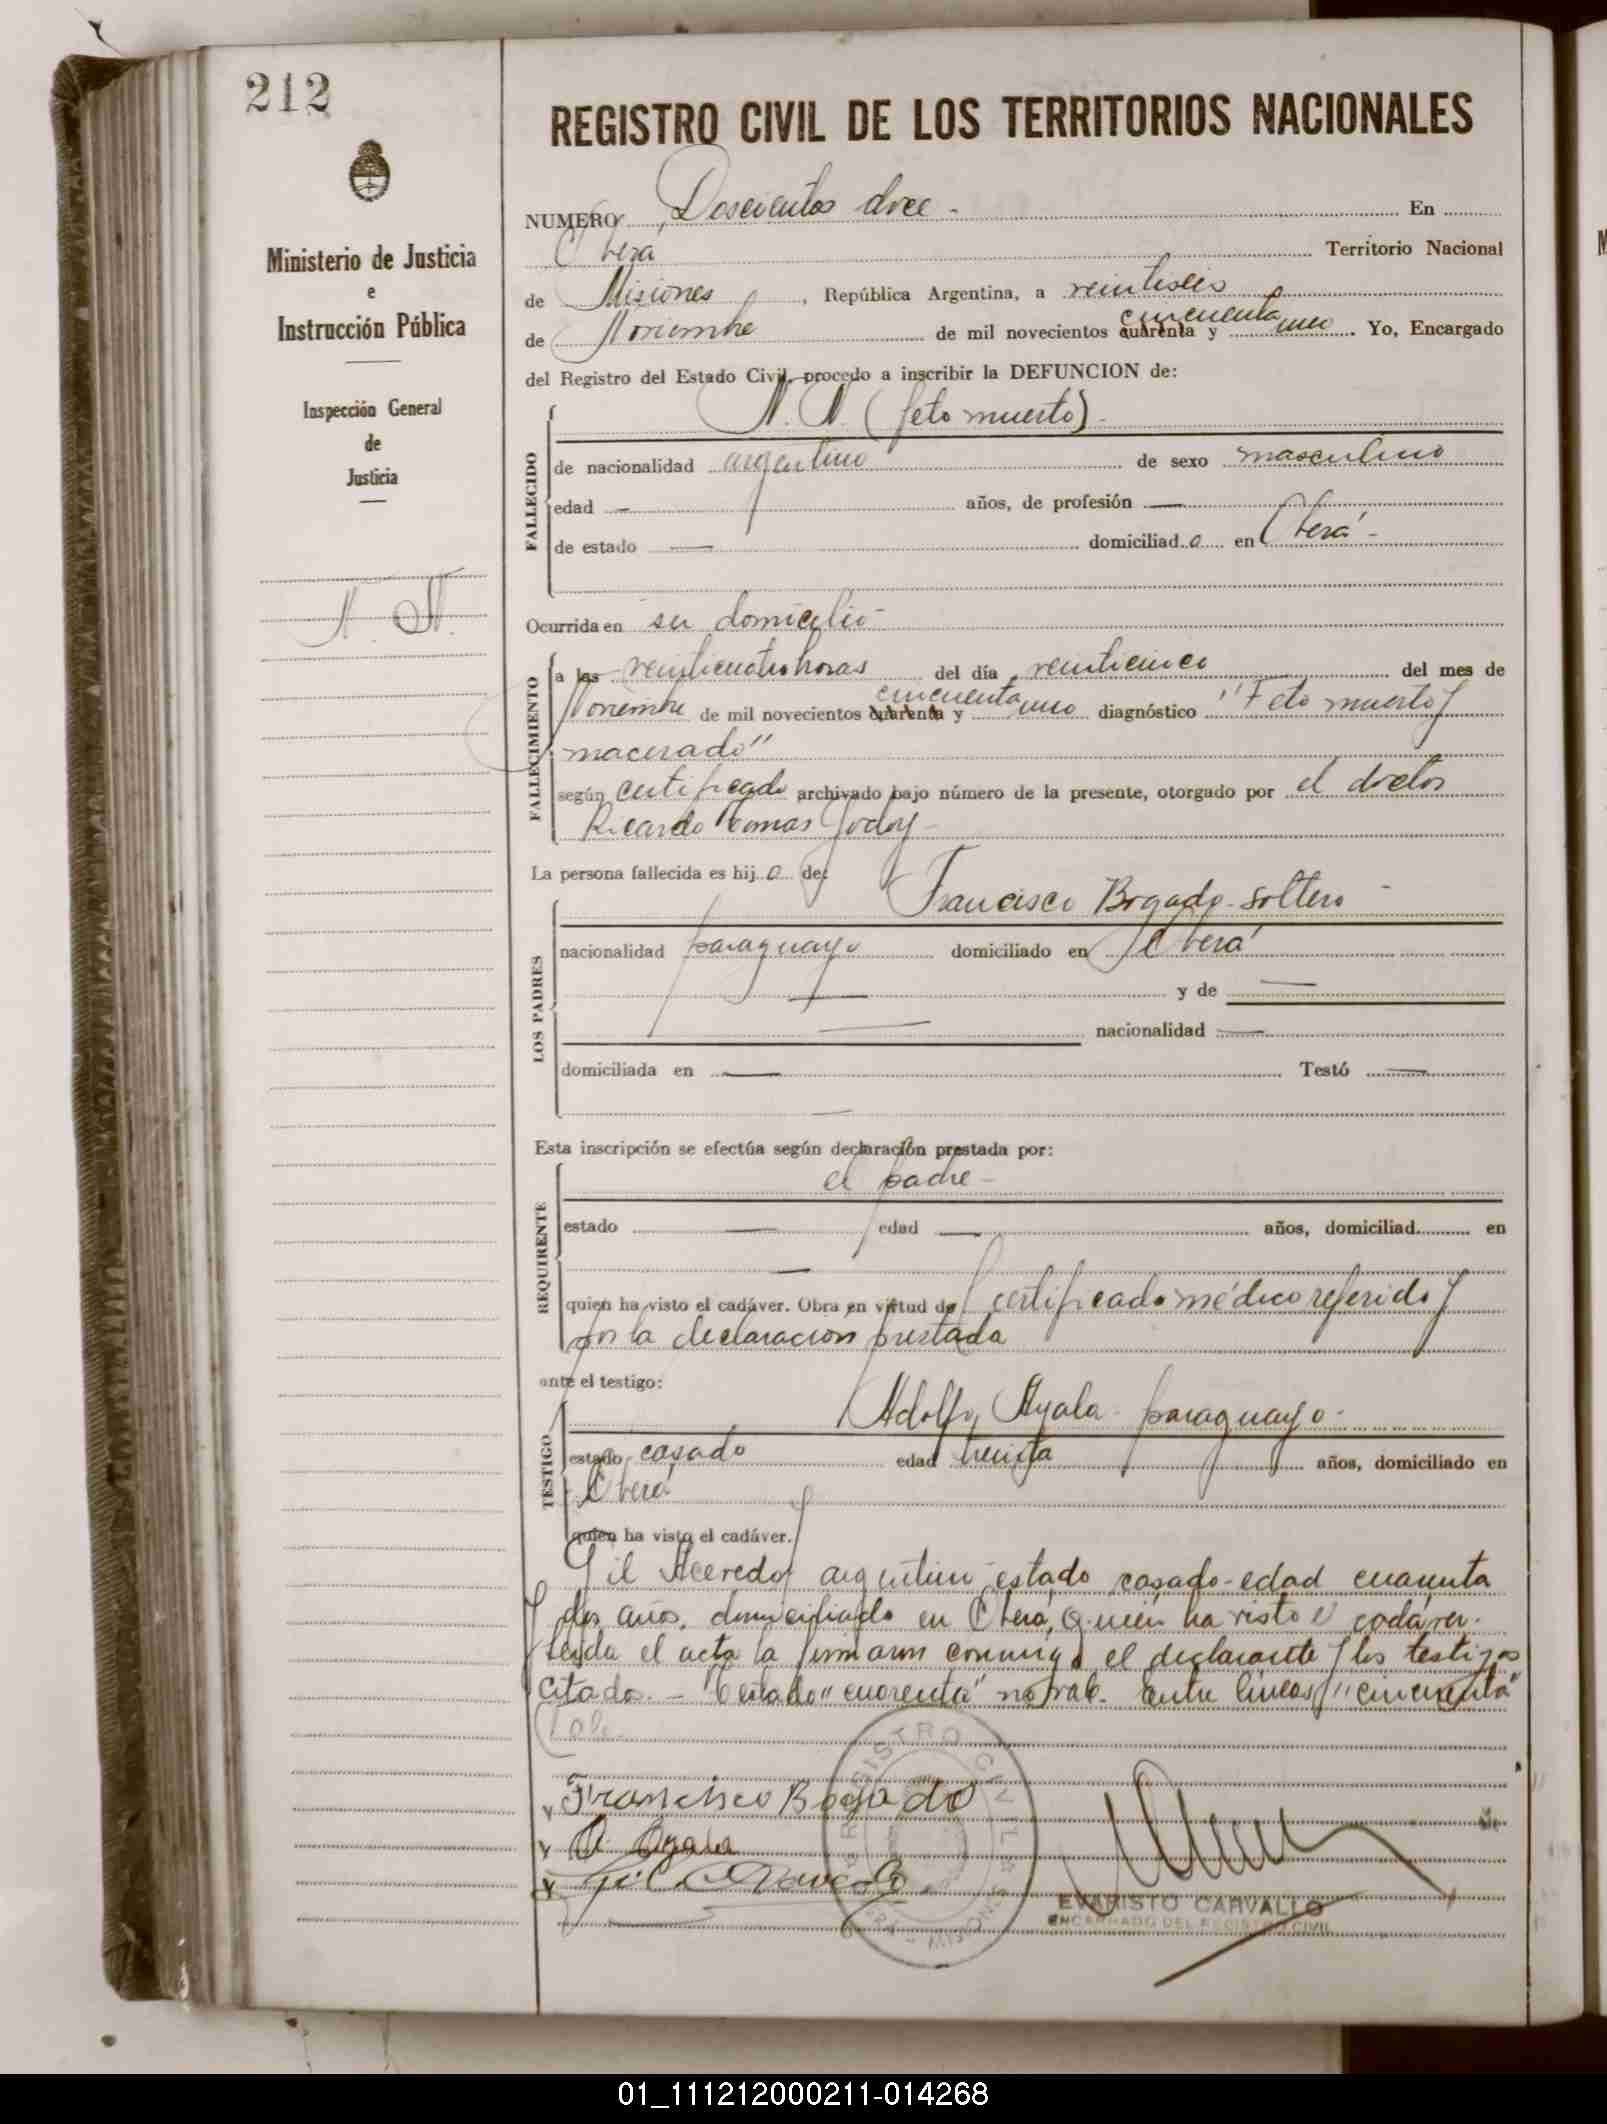 212
REGISTRO CIVIL DE LOS TERRITORIOS NACIONALES
Ministerio de Justicia
e
Instrucción Pública
Inspección General
de
Justicia
N. N.
NUMERO Doscientos doce - En
Oberá Territorio Nacional
de Misiones, República Argentina, a veintiseis
de Noviembre de mil novecientos cuarenta y cincuenta uno. Yo, Encargado
del Registro del Estado Civil, procedo a inscribir la DEFUNCION de:
N. N. (feto muerto) -
FALLECIDO
de nacionalidad argentino de sexo masculino
edad — años, de profesión —
de estado — domiciliado en Oberá -
Ocurrida en su domicilio -
FALLECIMIENTO
a las veinticuatro horas del día veinticinco del mes de
Noviembre de mil novecientos cuarenta y cincuenta uno diagnóstico "Feto muerto y
macerado"
según certificado archivado bajo número de la presente, otorgado por el doctor
Ricardo Tomas Godoy -
La persona fallecida es hijo de:
LOS PADRES
Francisco Bogado - soltero -
nacionalidad paraguayo domiciliado en Oberá
— y de —
— nacionalidad —
domiciliada en — Testó —
—
Esta inscripción se efectúa según declaración prestada por:
REQUIRENTE
el padre -
estado — edad — años, domiciliad en
—
quien ha visto el cadáver. Obra en virtud de certificado médico referido y
por la declaracion prestada
ante el testigo:
TESTIGO
Adolfo Ayala - paraguayo -
estado casado edad treinta años, domiciliado en
Oberá
quien ha visto el cadáver. y
Gil Acevedo, argentino, estado casado - edad cuarenta
y dos años, domiciliado en Oberá, quien ha visto el cadáver.
Leida el acta la firmaron conmigo el declarante y los testigos
citados. - Testado "cuarenta" no vale. Entre lineas "cincuenta"
Vale.
Francisco Bogado
A. Ayala
Gil Acevedo
REGISTRO CIVIL
OBERA - MISIONES
EVARISTO CARVALLO
ENCARGADO DEL REGISTRO CIVIL
01_111212000211-014268